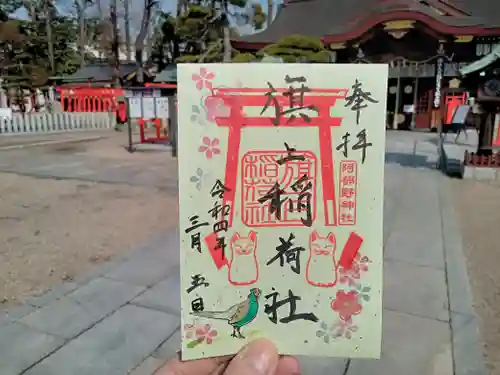 奉拝
阿部野神社
旗上稲荷社
令和四年
三月五日